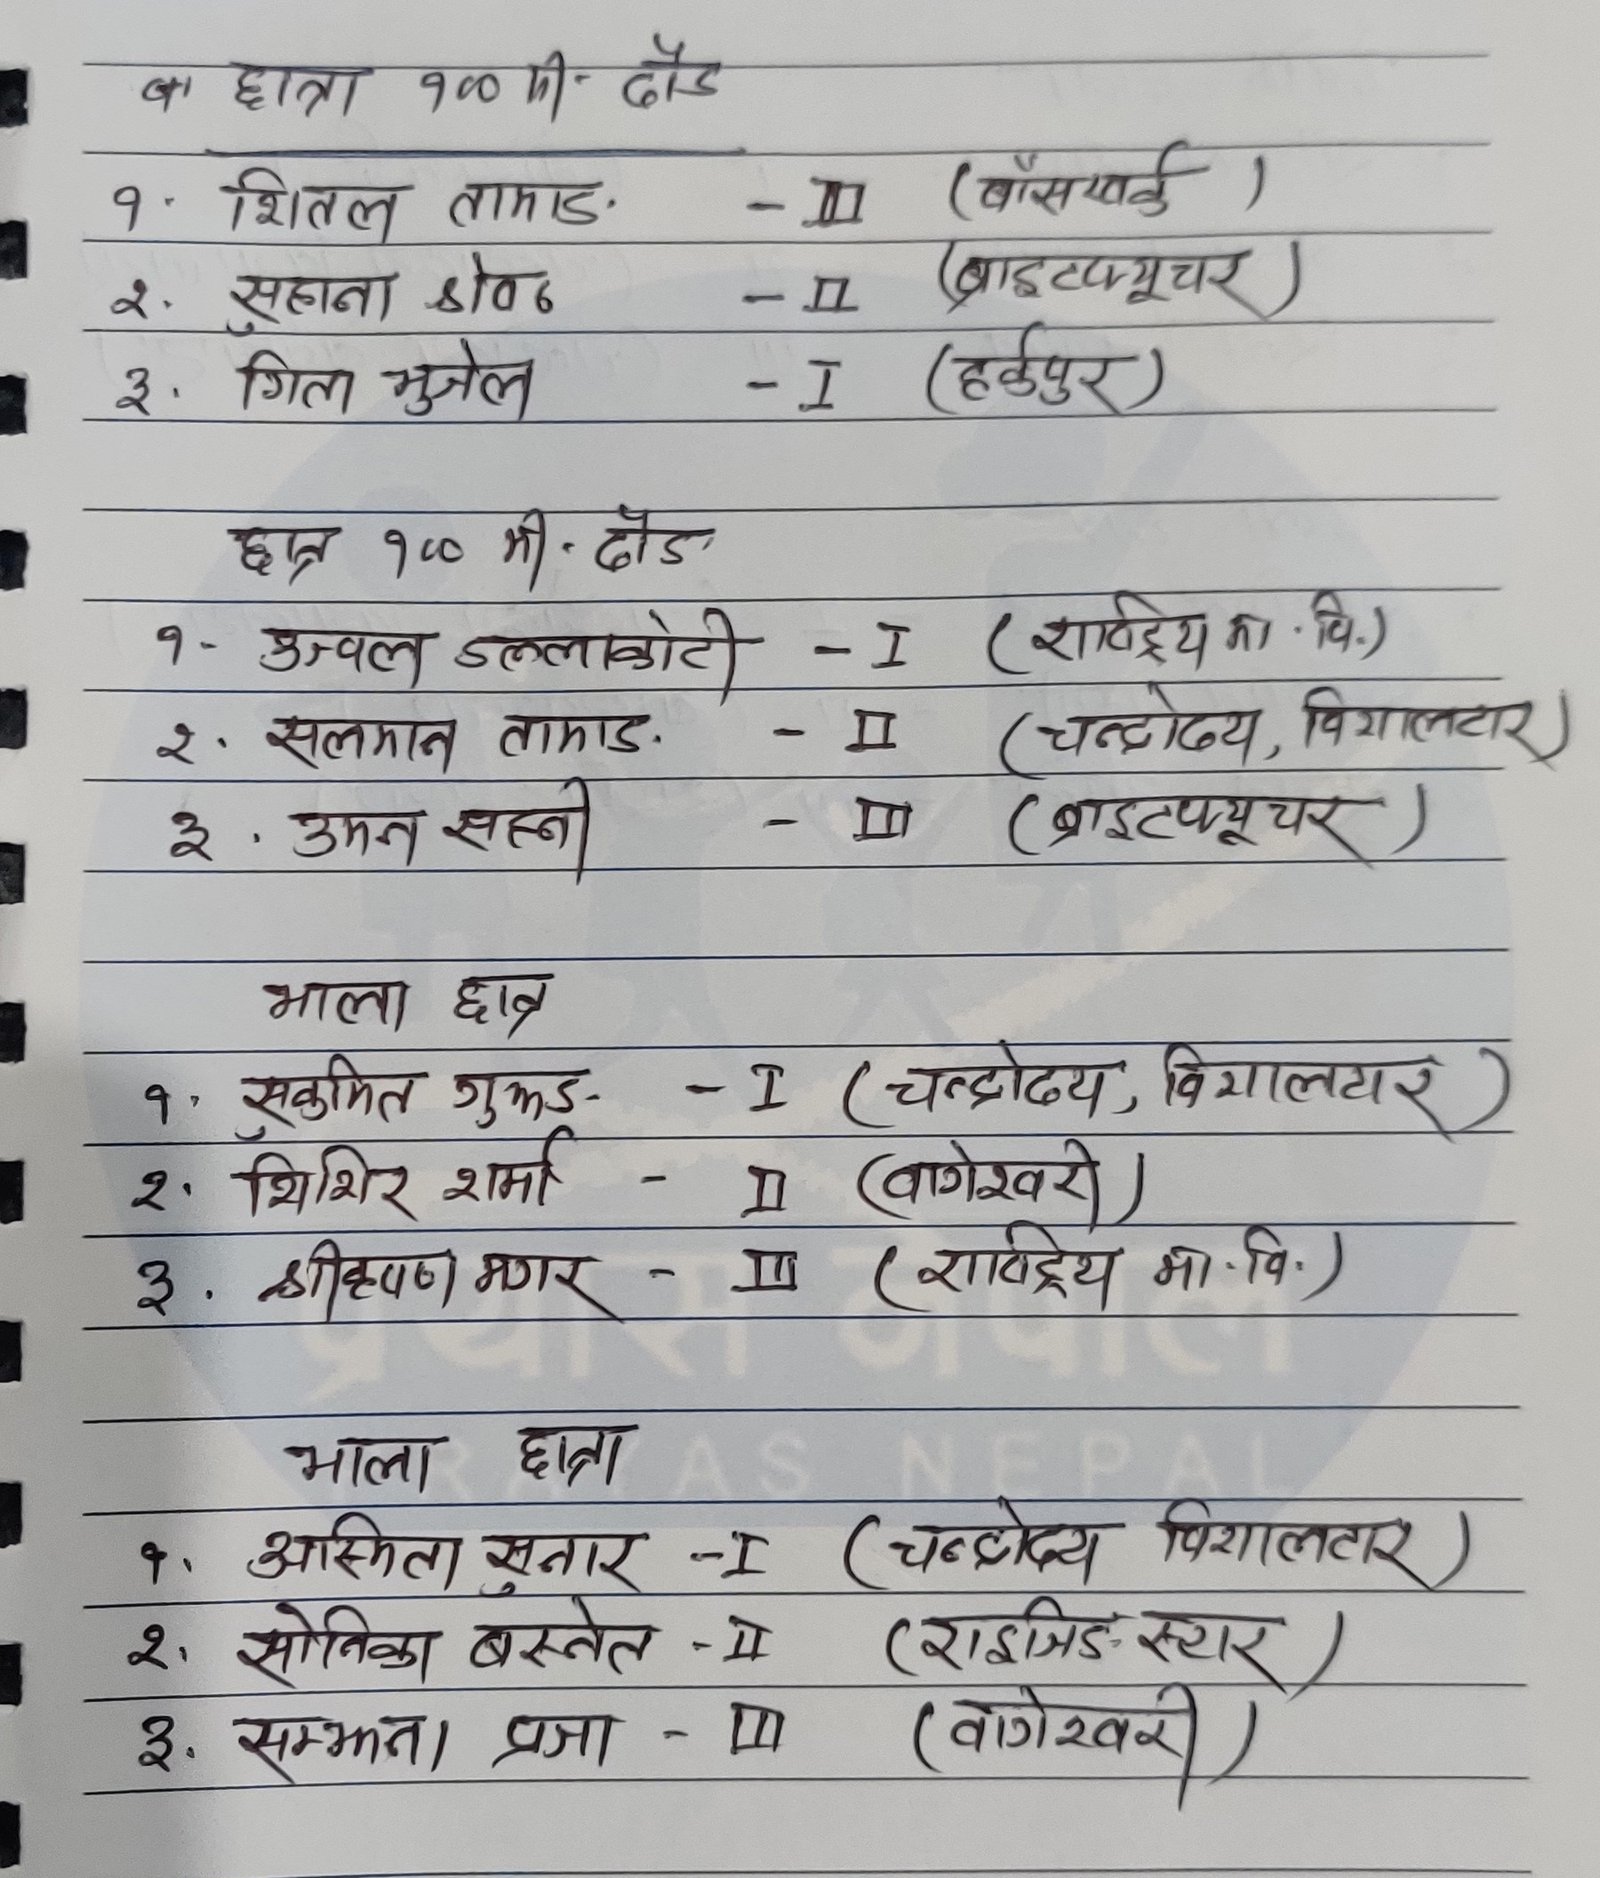 छात्रा १०० मी. दौड
१. शितल तामाङ - III (बाँसखर्क)
२. सुहाना श्रेष्ठ - II (ब्राइटफ्यूचर)
३. गिता भुजेल - I (हर्कपुर)
छात्र १०० मी. दौड
१- उज्वल डल्लाकोटी - I (राष्ट्रिय मा. वि.)
२. सलमान तामाङ - II (चन्द्रोदय, विशालटार)
३. उमन सहनी - III (ब्राइटफ्यूचर)
भाला छात्र
१. सुकमित गुरुङ - I (चन्द्रोदय, विशालटार)
२. शिशिर शर्मा - II (वागेश्वरी)
३. श्रीकृष्ण मगर - III (राष्ट्रिय मा. वि.)
प्रयास नेपाल
भाला छात्रा
PRAYAS NEPAL
१. अस्मिता सुनार - I (चन्द्रोदय विशालटार)
२. सोनिका बस्नेत - II (राइजिङ स्टार)
३. सम्झना प्रजा - III (वागेश्वरी)